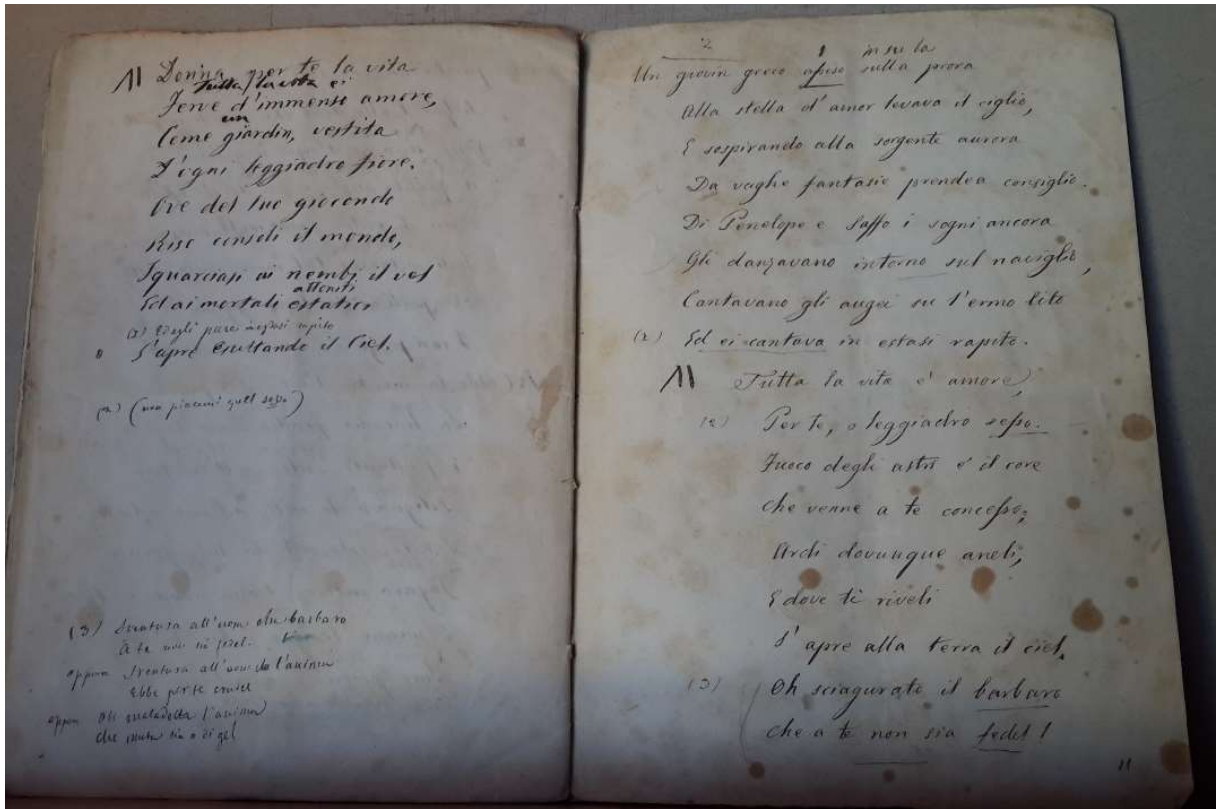 11 Donna per te la vita
Tutta la vita ei
Ferve d'immenso amore,
un
Come giardin, vestita
D'ogni leggiadro fiore.
Ove del tuo giocondo
Riso consoli il mondo,
Squarciasi ai nembi il vel
attoniti
Ed ai mortali estatici
(2) Ed egli parea in estasi rapito
S'apre esultando il Ciel.
(2) (non piacemi quel sesso)
(3) Sventura all'uom che barbaro
A te non sia fedel.
oppure Sventura all'uom che l'anima
Ebbe per te
oppure Oh maledetta l'anima
Che muta sia o di gel
2
1 in su la
Un giovin greco assiso sulla prora
Alla stella d'amor levava il ciglio,
E sospirando alla sorgente aurora
Da vaghe fantasie prendea consiglio.
Di Penelope e Saffo i sogni ancora
Gli danzavano intorno sul naviglio,
Cantavano gli augei su l'ermo lito
(2) Ed ei cantava in estasi rapito.
11 Tutta la vita è amore,
(2) Per te, o leggiadro sesso.
Fuoco degli astri è il core
Che venne a te concesso;
Ardi dovunque aneli,
E dove ti riveli
S'apre alla terra il ciel.
(3) Oh sciagurato il barbaro
Che a te non sia fedel!
11